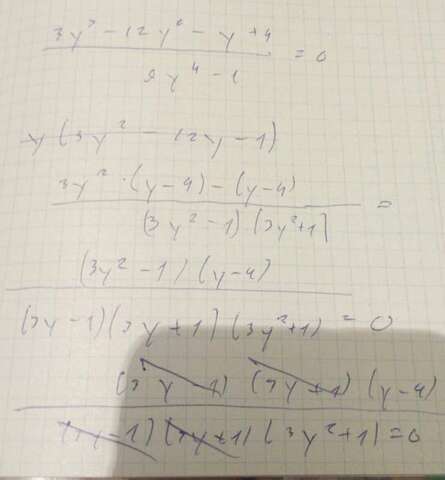 3y³ - 12y² - y + 4
= 0
9y⁴ - 1
y (3y² - 12y - 1)
3y² · (y-4) - (y-4)
=
(3y² - 1) · (3y² + 1)
(3y² - 1) (y-4)
(3y-1) (3y+1) (3y²+1) = 0
(3y-1) (3y+1) (y-4)
(3y-1) (3y+1) (3y²+1) = 0